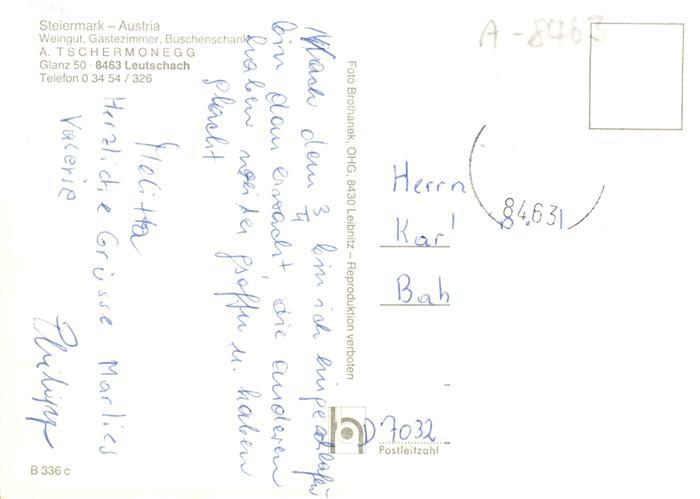 Steiermark – Austria
Weingut, Gästezimmer, Buschenschank
A. TSCHERMONEGG
Glanz 50 · 8463 Leutschach
Telefon 0 34 54 / 326
Nach dem 3 bin ich eingeschlafen
bin dan erwacht, die anderen
haben weiter gsoffn u. haben
glacht
Melitta
Herzliche Grüsse Marlies
Valerie
Philipp
B 336 c
Foto Brothanek, OHG, 8430 Leibnitz – Reproduktion verboten
A-8463
8463
Herrn
Karl
Bah
D 7032
Postleitzahl